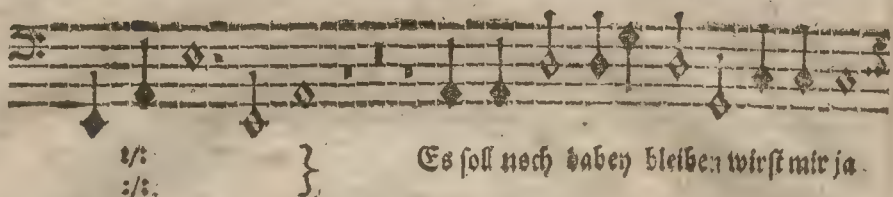 :/: } Es soll noch dabey bleiben wirst mir ja
:/: